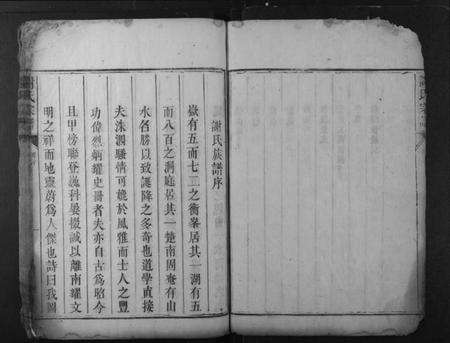 謝氏族譜序
嶽有五而七二之衡峯居其一湖有五
而八百之洞庭居其一楚南固奄有山
水名勝以致誕降之多奇也道學直接
夫洙泗騷情可概於風雅而士人之豐
功偉烈炳燿史冊者夫亦自古爲昭今
且甲榜聯登巍科屢掇誠以離南耀文
明之祥而地靈蔚爲人傑也詩曰我圖